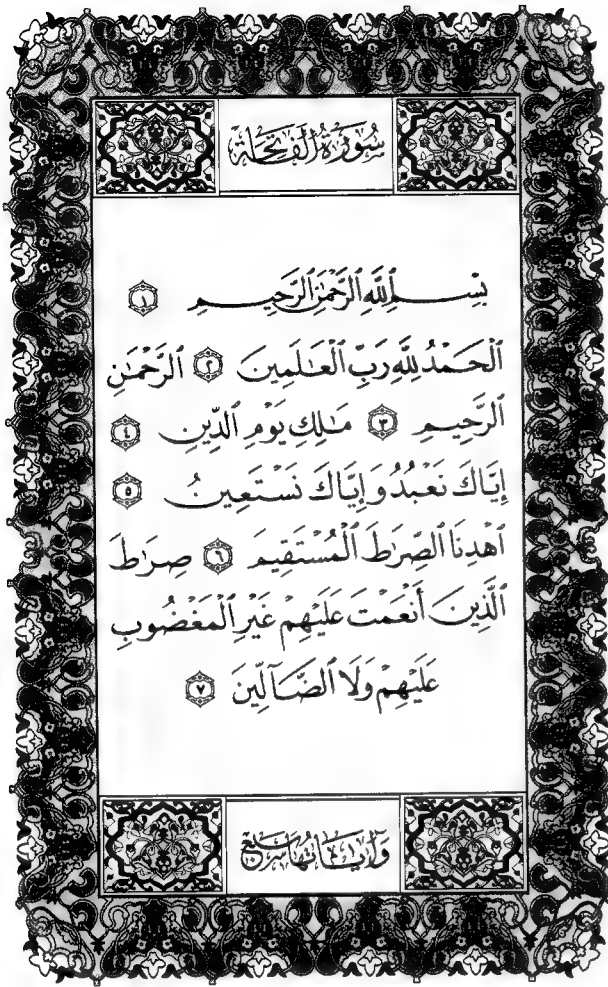 سُورَةُ الْفَاتِحَة
بِسْمِ ٱللَّهِ ٱلرَّحْمَٰنِ ٱلرَّحِيمِ ١
ٱلْحَمْدُ لِلَّهِ رَبِّ ٱلْعَٰلَمِينَ ٢ ٱلرَّحْمَٰنِ
ٱلرَّحِيمِ ٣ مَٰلِكِ يَوْمِ ٱلدِّينِ ٤
إِيَّاكَ نَعْبُدُ وَإِيَّاكَ نَسْتَعِينُ ٥
ٱهْدِنَا ٱلصِّرَٰطَ ٱلْمُسْتَقِيمَ ٦ صِرَٰطَ
ٱلَّذِينَ أَنْعَمْتَ عَلَيْهِمْ غَيْرِ ٱلْمَغْضُوبِ
عَلَيْهِمْ وَلَا ٱلضَّآلِّينَ ٧
وَآيَاتُهَا سَبْعٌ